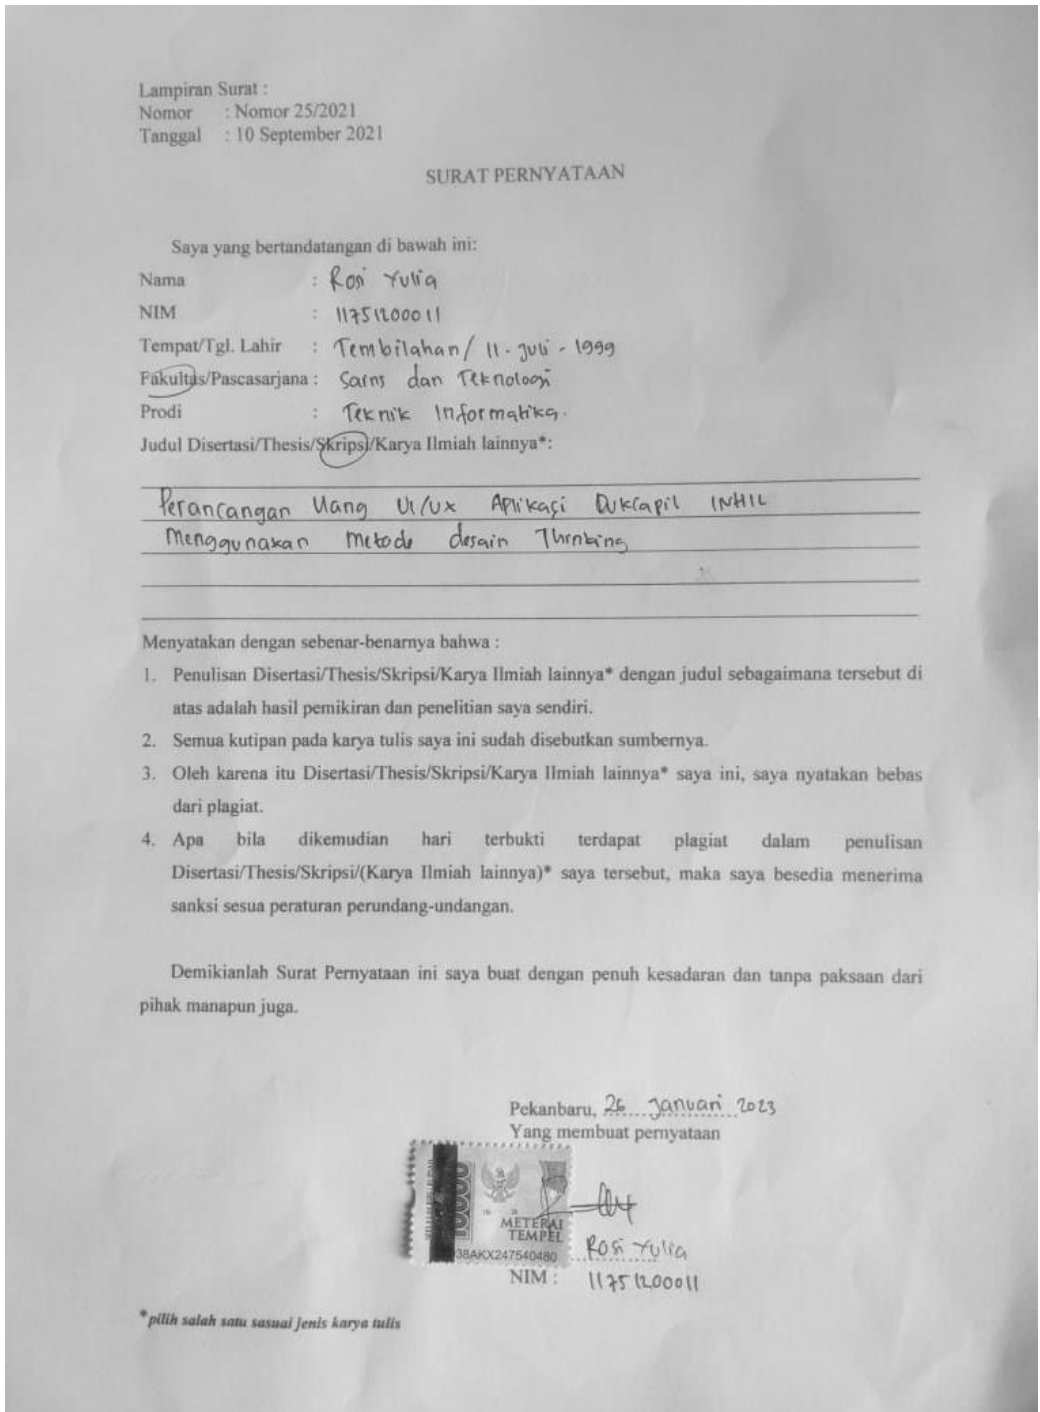 Lampiran Surat :
Nomor : Nomor 25/2021
Tanggal : 10 September 2021
SURAT PERNYATAAN
Saya yang bertandatangan di bawah ini:
Nama : Rosi Yulia
NIM : 11751200011
Tempat/Tgl. Lahir : Tembilahan/ 11 - Juli - 1999
Fakultas/Pascasarjana : Sains dan Teknologi
Prodi : Teknik Informatika.
Judul Disertasi/Thesis/Skripsi/Karya Ilmiah lainnya*:
Perancangan Ulang UI/UX Aplikasi Dukcapil INHIL
Menggunakan Metode desain Thinking
Menyatakan dengan sebenar-benarnya bahwa :
1. Penulisan Disertasi/Thesis/Skripsi/Karya Ilmiah lainnya* dengan judul sebagaimana tersebut di
atas adalah hasil pemikiran dan penelitian saya sendiri.
2. Semua kutipan pada karya tulis saya ini sudah disebutkan sumbernya.
3. Oleh karena itu Disertasi/Thesis/Skripsi/Karya Ilmiah lainnya* saya ini, saya nyatakan bebas
dari plagiat.
4. Apa bila dikemudian hari terbukti terdapat plagiat dalam penulisan
Disertasi/Thesis/Skripsi/(Karya Ilmiah lainnya)* saya tersebut, maka saya besedia menerima
sanksi sesua peraturan perundang-undangan.
Demikianlah Surat Pernyataan ini saya buat dengan penuh kesadaran dan tanpa paksaan dari
pihak manapun juga.
Pekanbaru, 26 Januari 2023
Yang membuat pernyataan
10000
METERAI
TEMPEL
38AKX247540480
Rosi Yulia
NIM : 11751200011
*pilih salah satu sasuai jenis karya tulis